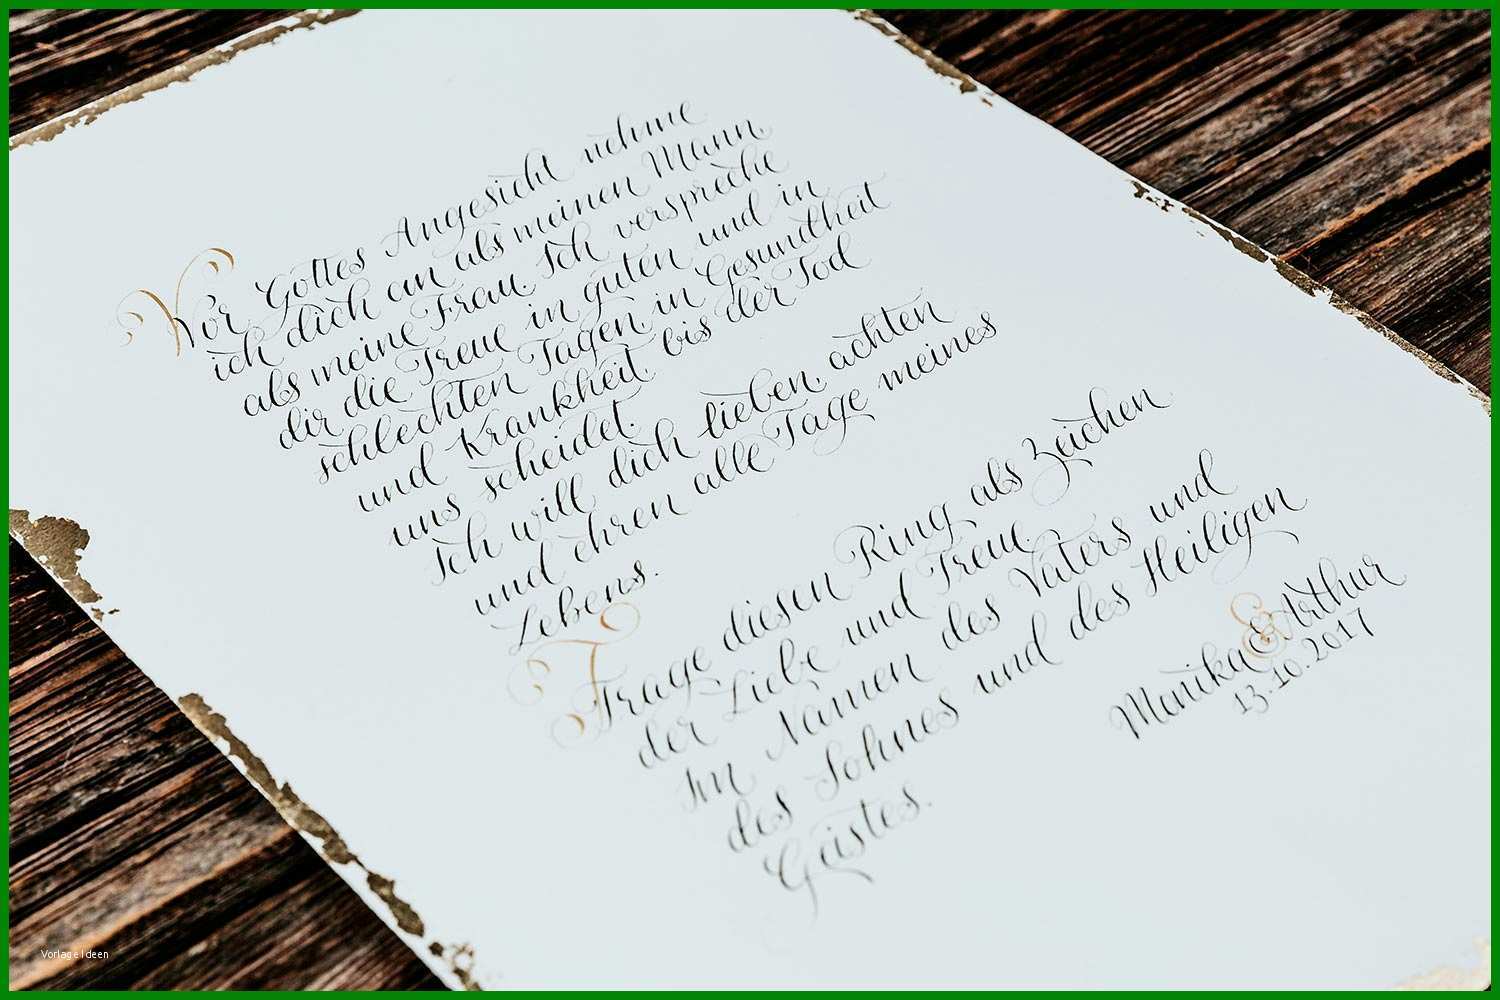 Vor Gottes Angesicht nehme
ich dich an als meinen Mann,
als meine Frau. Ich verspreche
dir die Treue in guten und in
schlechten Tagen, in Gesundheit
und Krankheit, bis der Tod
uns scheidet.
Ich will dich lieben, achten
und ehren alle Tage meines
Lebens.
Trage diesen Ring als Zeichen
der Liebe und Treue.
Im Namen des Vaters und
des Sohnes und des Heiligen
Geistes.
Monika & Arthur
13.10.2017
Vorlage Ideen